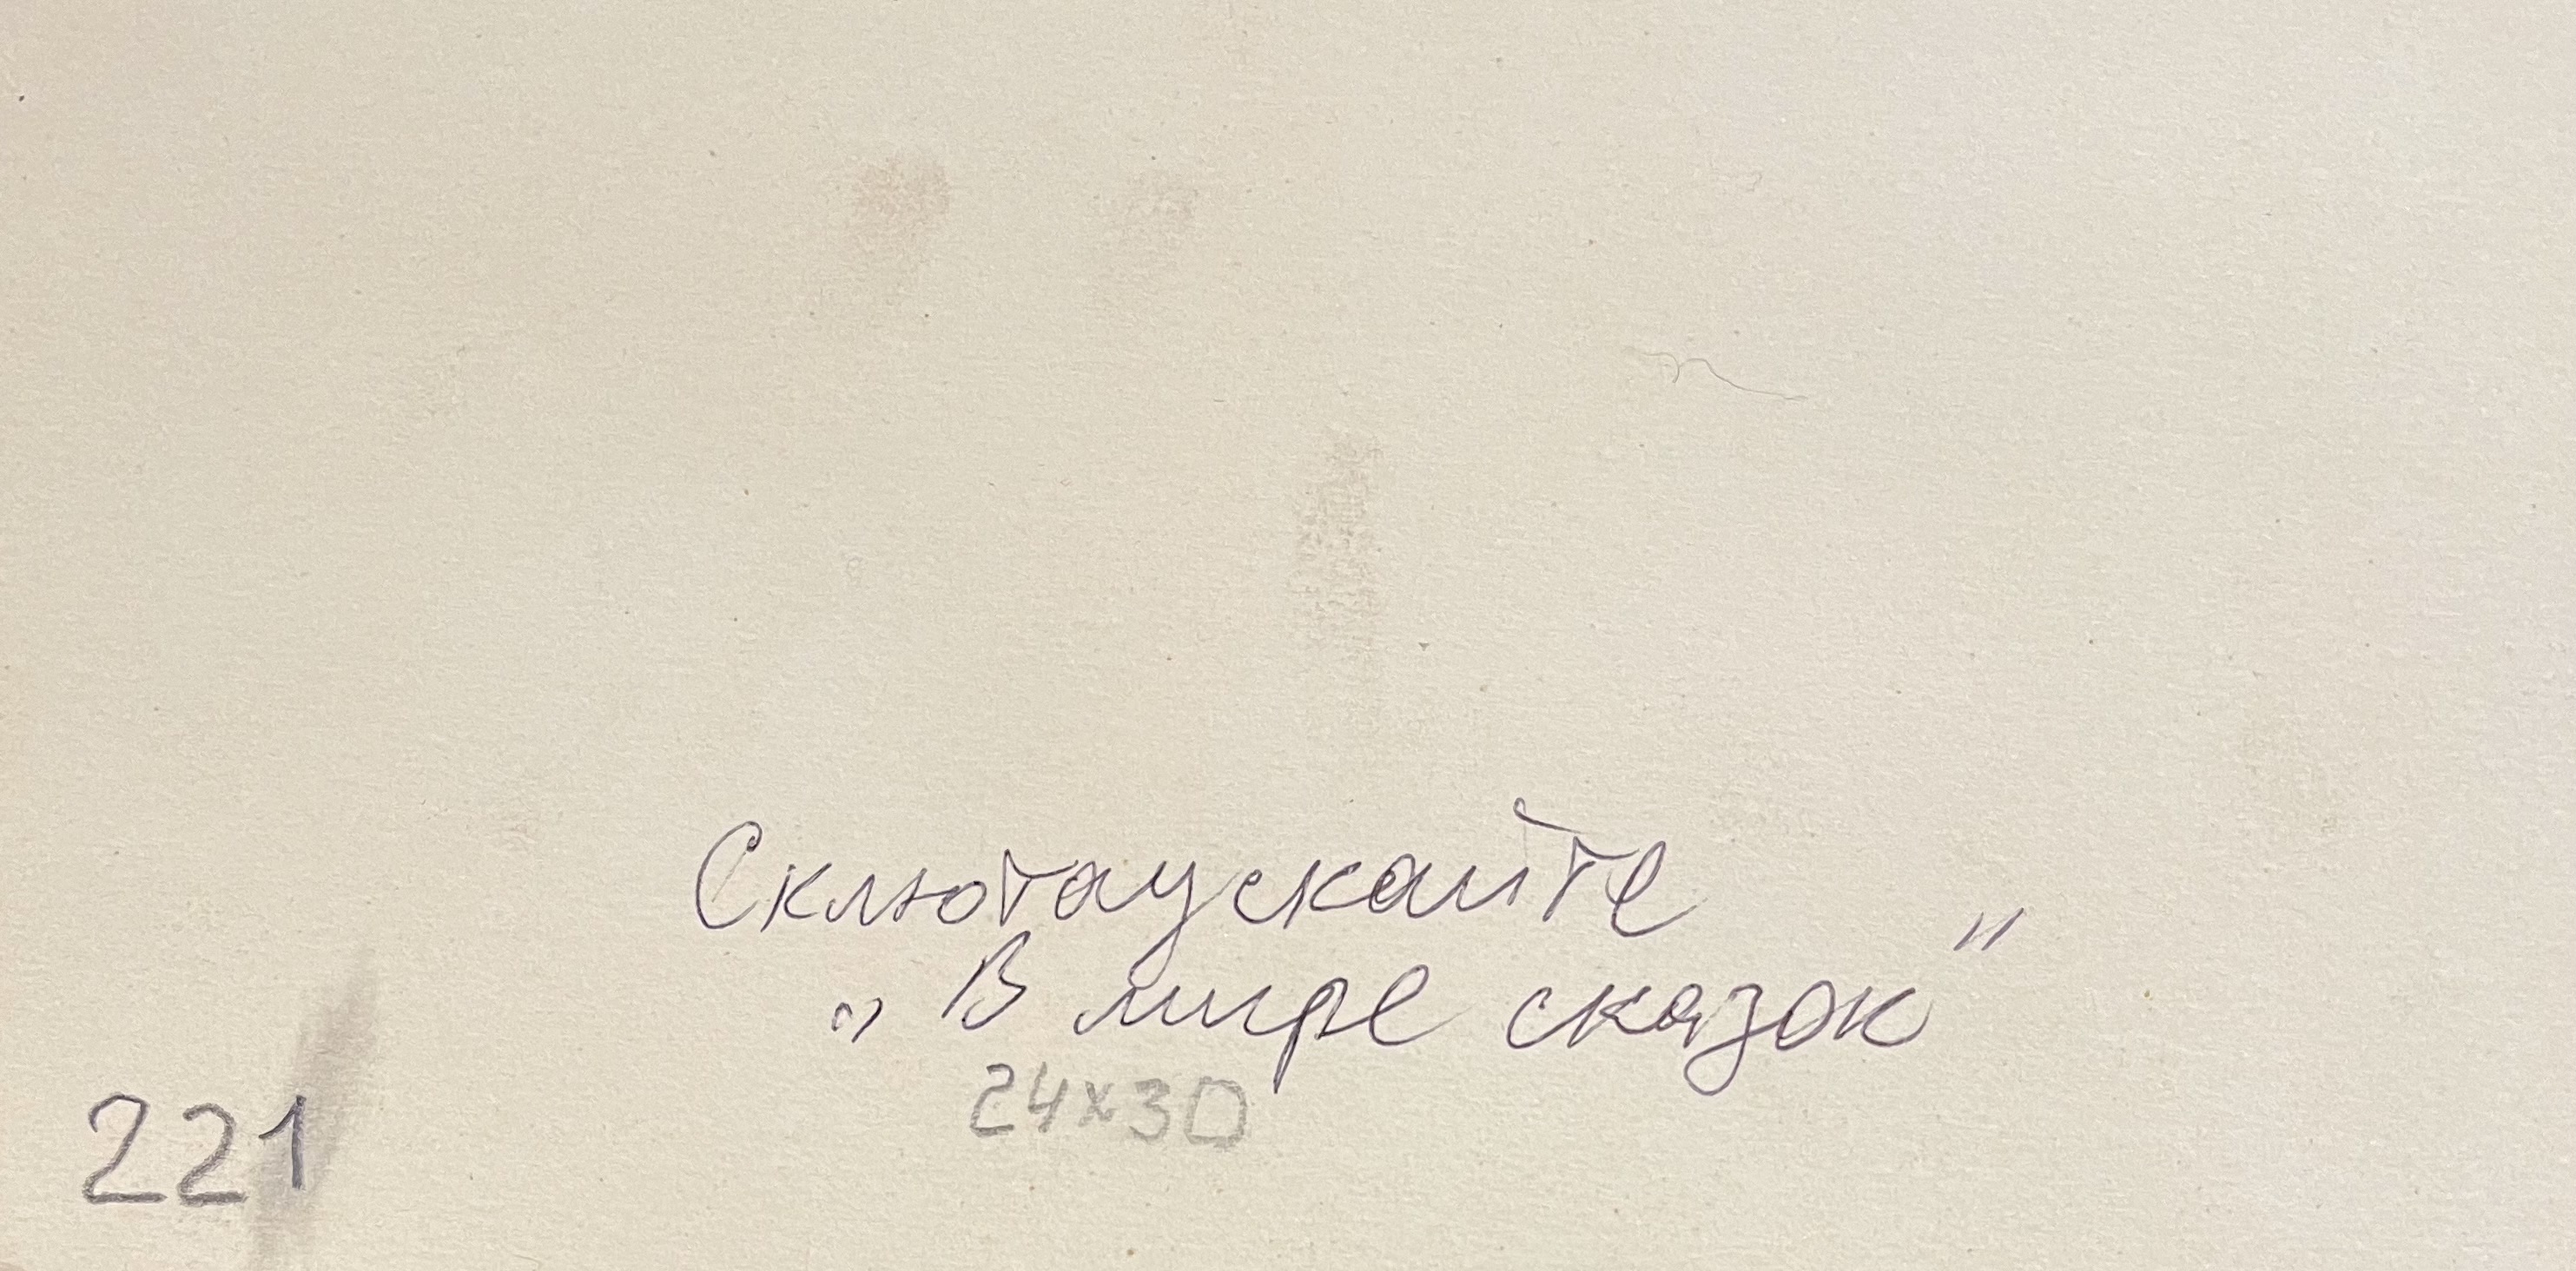 Склютаускайте
„В мире сказок"
24x30
221